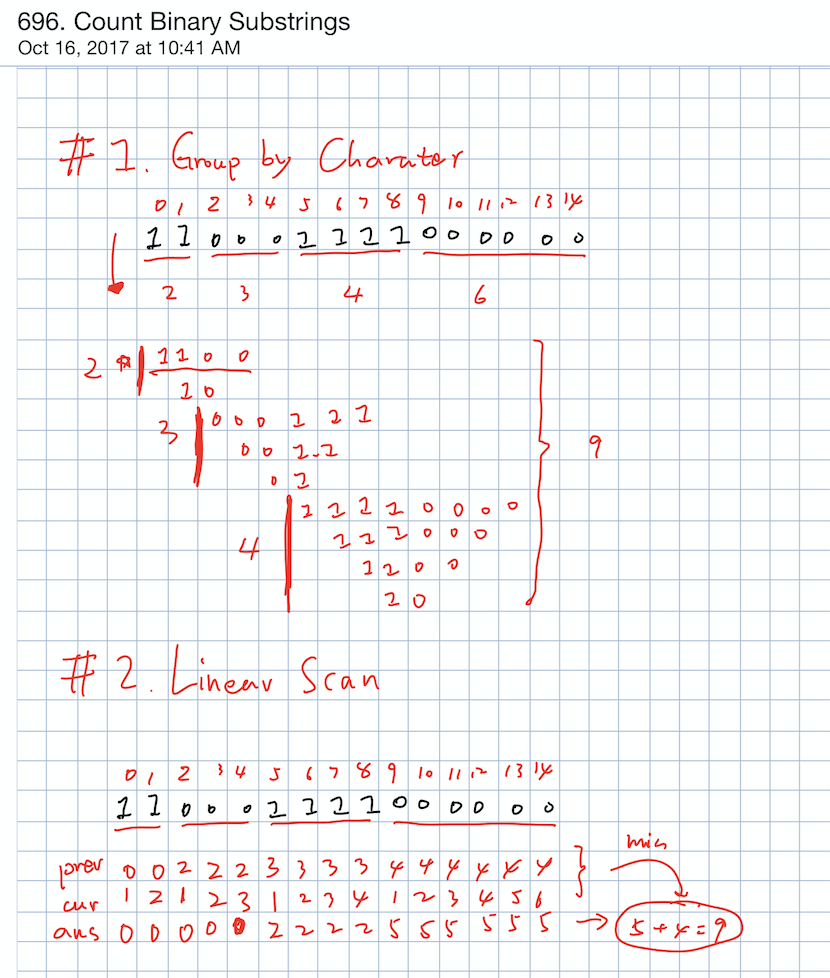 696. Count Binary Substrings
Oct 16, 2017 at 10:41 AM
#1. Group by Charater
0 1 2 3 4 5 6 7 8 9 10 11 12 13 14
1 1 0 0 0 1 1 1 1 0 0 0 0 0 0
2 3 4 6
2 1 1 0 0
1 0
3 0 0 0 1 1 1
0 0 1 1
0 1
9
1 1 1 1 0 0 0 0
4 1 1 1 0 0 0
1 1 0 0
1 0
#2. Linear Scan
0 1 2 3 4 5 6 7 8 9 10 11 12 13 14
1 1 0 0 0 1 1 1 1 0 0 0 0 0 0
min
prev 0 0 2 2 2 3 3 3 3 4 4 4 4 4 4
cur 1 2 1 2 3 1 2 3 4 1 2 3 4 5 6
ans 0 0 0 0 0 2 2 2 2 5 5 5 5 5 5 → 5+4=9